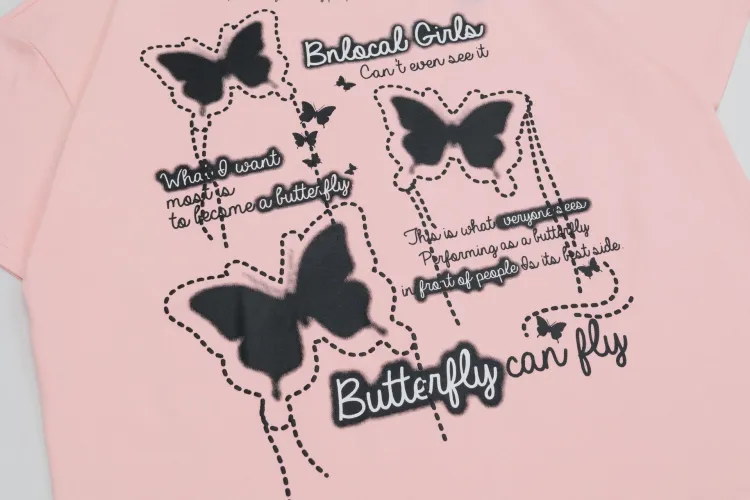 Bnlocal Girls
Can't even see it
What I want
most is
to become a butterfly
This is what veryone sees
Performing as a butterfly
in front of people Is its best side.
Butterfly can fly